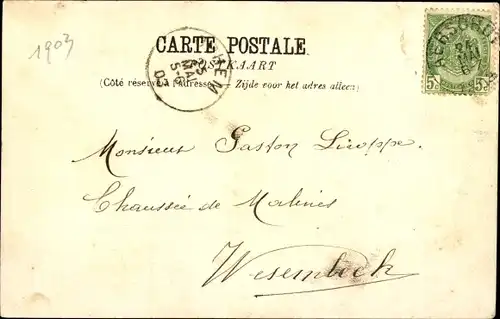 1903
CARTE POSTALE
POSTKAART
(Côté réservé à l'adresse. — Zijde voor het adres alleen)
HEM
25
MAI
5-6
03
5 5
Monsieur Gaston
Chaussée de Malines
Wesembeek